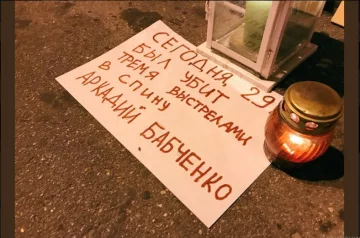 СЕГОДНЯ 29
БЫЛ УБИТ
ТРЕМЯ ВЫСТРЕЛАМИ
В СПИНУ
АРКАДИЙ БАБЧЕНКО